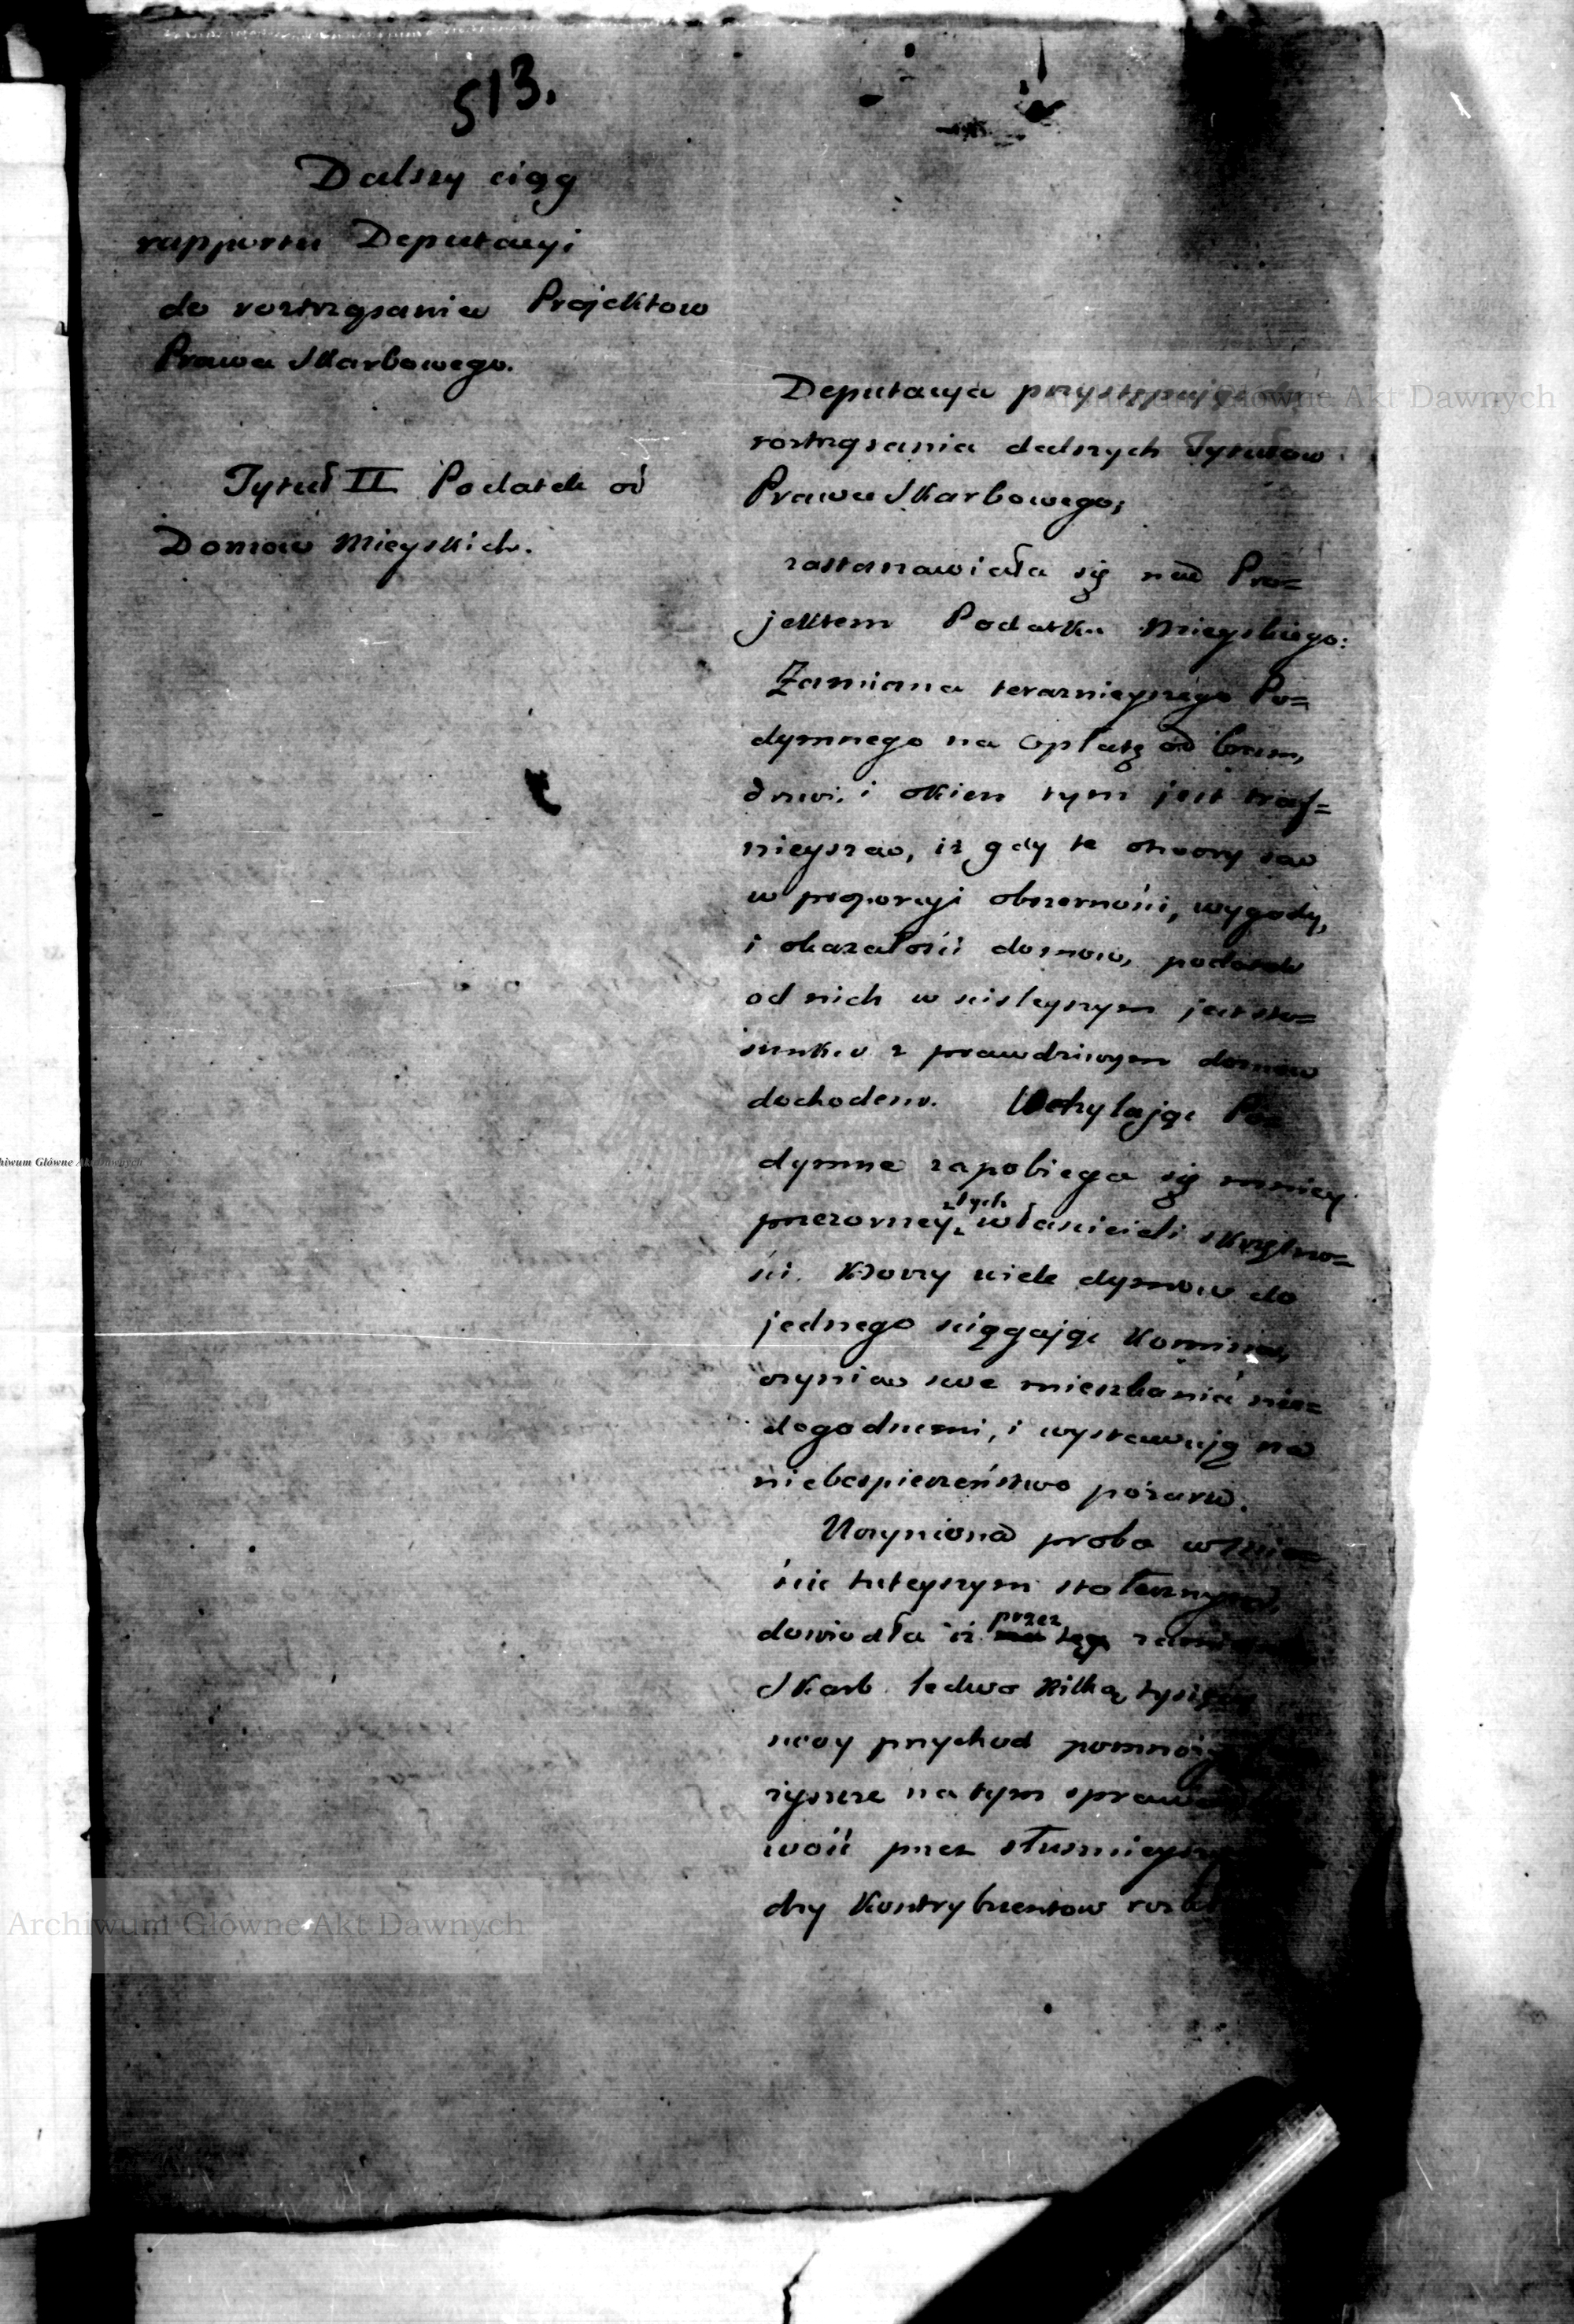 513.
Dalszy ciąg
rapportu Deputacyi
do roztrząsania Projektow
Prawa Skarbowego.
Tytuł II Podatek od
Domow Mieyskich.
Deputacya przystępując do
roztrząsania dalszych Tytułow
Prawa Skarbowego;
zastanawiała się nad Pro=
jektem Podatku Mieyskiego:
Zamiana teraznieyszego Po=
dymnego na opłatę od bram,
drzwi, i okien tym jest traf=
nieysza, iż gdy te otwory są
w proporcyi obszerności, wygody,
i okazałości domow, podatek
od nich w scisleyszym jest sto=
sunku z prawdziwym domow
dochodem. Uchylając Po=
dymne zapobiega się mniey
przezorney tych właścicieli skrzętno=
ści. Ktorzy wiele dymow do
jednego sciągając Komina,
czynią swe mieszkania nie=
dogodnemi, i wystawują na
niebespieczeństwo pożaru.
Uczyniona proba w Mie=
ście tuteyszym stołecznym,
dowiodła iż przez tę
Skarb ledwo Kilką tysięcy
swoy przychod
zyszcze na tym
wość przez słusznieyszy
dzy Kontrybuentow
Archiwum Główne Akt Dawnych
Archiwum Główne Akt Dawnych
hiwum Główne Akt Dawnych